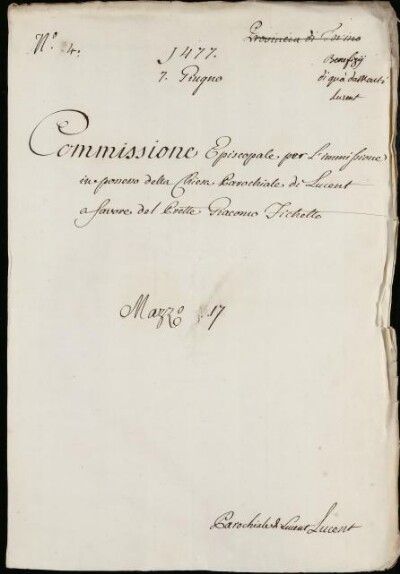 N.º 24.
Provincia di Torino
1477.
7. Giugno
Benefizj
di quà da Monti
Lucent
Commissione Episcopale per l'immissione
in possesso della Chiesa Parochiale di Lucent
a favore del Prette Giacomo Fichetto
Mazzº 17
Parochiale di Lucent Lucent